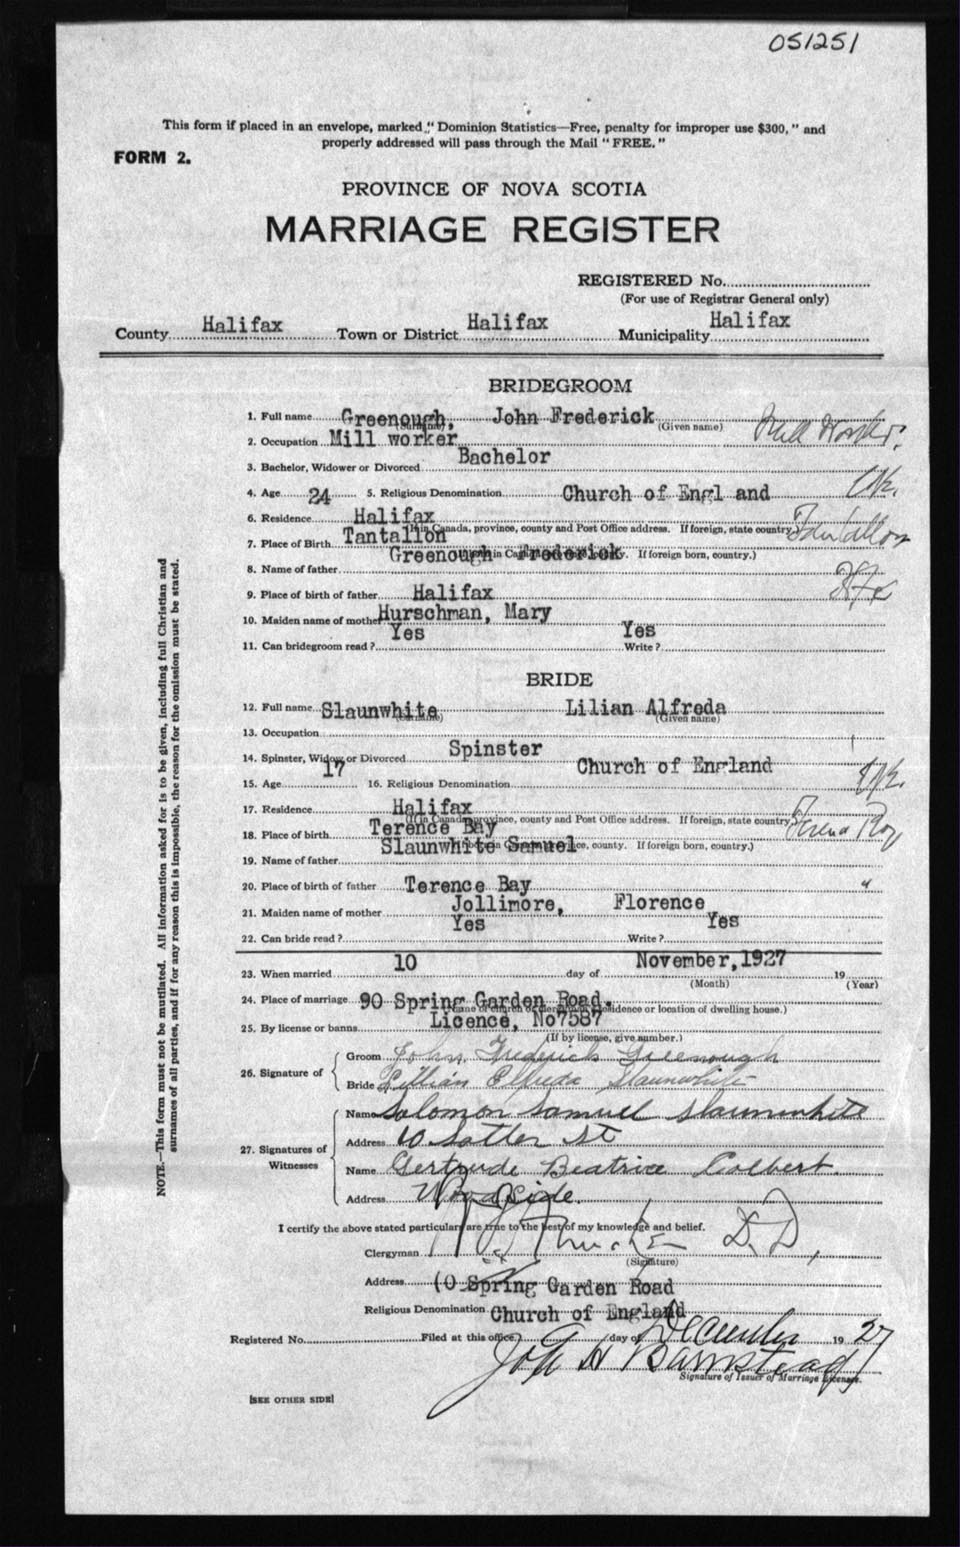 051251
This form if placed in an envelope, marked " Dominion Statistics—Free, penalty for improper use $300, " and
properly addressed will pass through the Mail " FREE. "
FORM 2.
PROVINCE OF NOVA SCOTIA
MARRIAGE REGISTER
REGISTERED No.
(For use of Registrar General only)
County Halifax Town or District Halifax Municipality Halifax
BRIDEGROOM
1. Full name Greenough, John Frederick
(Surname) (Given name)
2. Occupation Mill worker Mill Worker.
3. Bachelor, Widower or Divorced Bachelor
4. Age 24 5. Religious Denomination Church of Engl and
6. Residence Halifax
(If in Canada, province, county and Post Office address. If foreign, state country.)
7. Place of Birth Tantallon Tantallon
(If born in Canada, county. If foreign born, country.)
8. Name of father Greenough Frederick
9. Place of birth of father Halifax Hfx
10. Maiden name of mother Hurschman, Mary
11. Can bridegroom read? Yes Write? Yes
BRIDE
12. Full name Slaunwhite Lilian Alfreda
(Surname) (Given name)
13. Occupation
14. Spinster, Widow or Divorced Spinster
15. Age 17 16. Religious Denomination Church of England
17. Residence Halifax
(If in Canada, province, county and Post Office address. If foreign, state country.)
18. Place of birth Terence Bay Terence Bay
province, county. If foreign born, country.)
19. Name of father Slaunwhite Samuel
20. Place of birth of father Terence Bay "
21. Maiden name of mother Jollimore, Florence
22. Can bride read? Yes Write? Yes
23. When married 10 day of November,1927 19
(Month) (Year)
24. Place of marriage 90 Spring Garden Road.
(Name of church or clergyman's residence or location of dwelling house.)
25. By license or banns Licence, No7587
(If by license, give number.)
26. Signature of
Groom John Frederick Greenough
Bride Lillian Elfreda Slaunwhite
27. Signatures of Witnesses
Name Solomon Samuel Slaunwhite
Address 10 St
Name Gertrude Beatrice Colbert.
Address Woodside.
I certify the above stated particulars are true to the best of my knowledge and belief.
Clergyman D.D,
(Signature)
Address Spring Garden Road
Religious Denomination Church of England
Registered No. Filed at this office day of December 19 27
Barnstead
Signature of Issuer of Marriage Licenses.
[SEE OTHER SIDE]
NOTE.—This form must not be mutilated. All information asked for is to be given, including full Christian and
surnames of all parties, and if for any reason this is impossible, the reason for the omission must be stated.